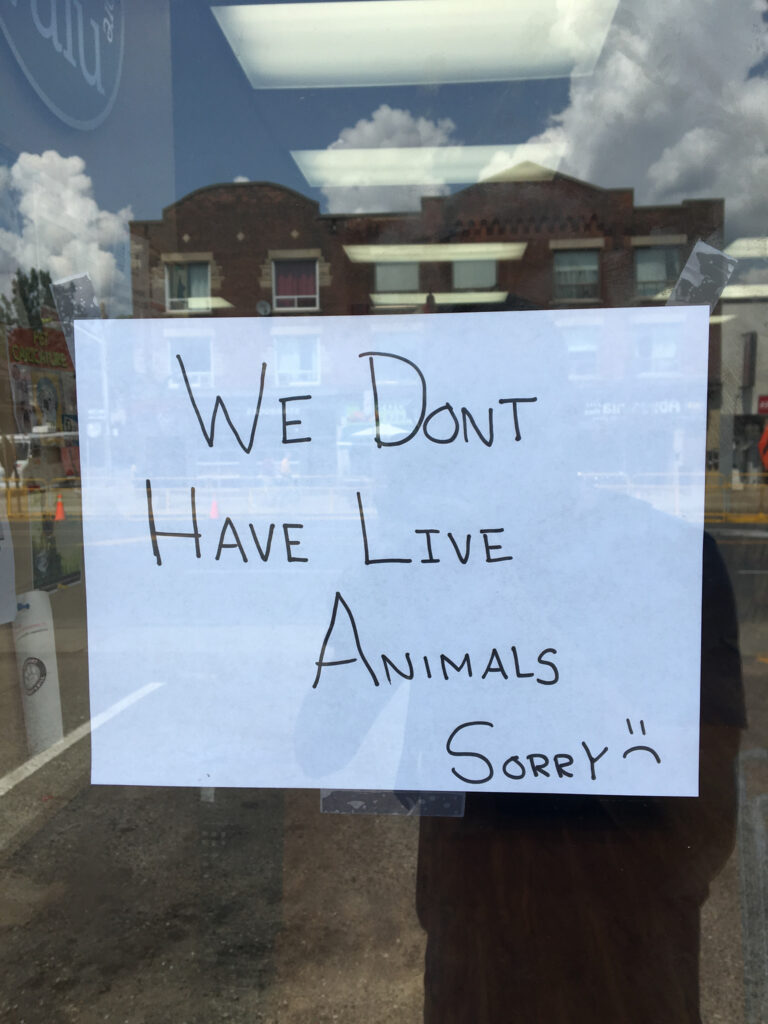 WE DONT
HAVE LIVE
ANIMALS
SORRY :(